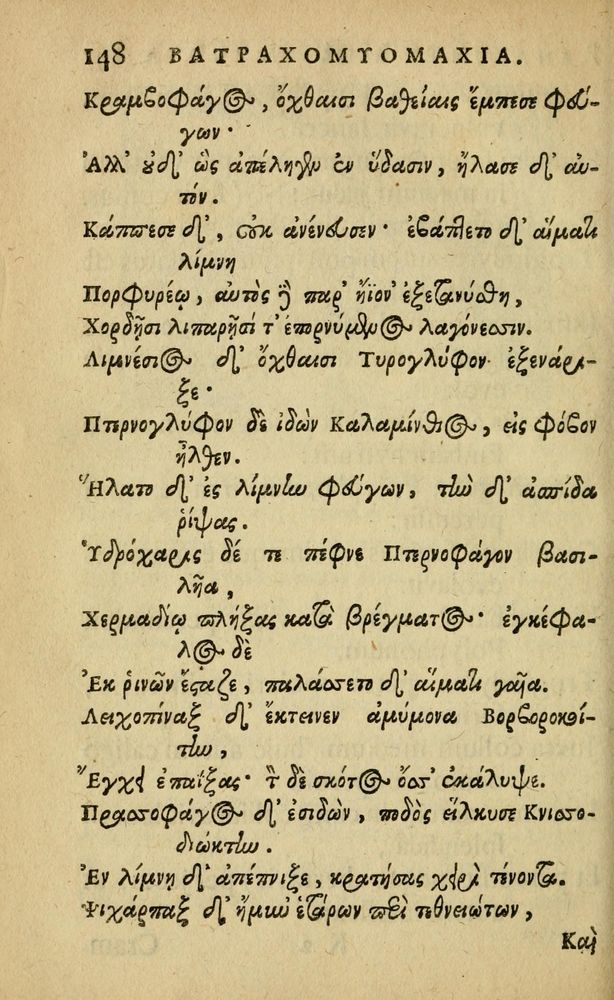 148 ΒΑΤΡΑΧΟΜΥΟΜΑΧΙΑ.
Κραμβοφάγος, ὄχθαισι βαθείαις ἔμπεσε φεύ-
γων·
Ἀλλ' οὐδ' ὣς ἀπέληγεν ἐν ὕδασιν, ἤλασε δ' αὐ-
τόν.
Κάππεσε δ', οὐκ ἀνένευσεν· ἐβάπτετο δ' αἵματι
λίμνη
Πορφυρέῳ, αὐτὸς δὲ παρ' ἤϊον' ἐξετανύσθη,
Χορδῇσι λιπαρῇσί τ' ἐπορνύμενος λαγόνεσσιν.
Λιμνέσιος δ' ὄχθαισι Τυρογλύφον ἐξενάρι-
ξε·
Πτερνογλύφον δὲ ἰδὼν Καλαμίνθιος, εἰς φόβον
ἦλθεν.
Ἥλατο δ' ἐς λίμνην φεύγων, τὴν δ' ἀσπίδα
ῥίψας.
Ὑδρόχαρις δέ τε πέφνε Πτερνοφάγον βασι-
λῆα,
Χερμαδίῳ πλήξας κατὰ βρέγματος· ἐγκέφα-
λος δὲ
Ἐκ ῥινῶν ἔσταζε, παλάσσετο δ' αἵματι γαῖα.
Λειχοπίναξ δ' ἔκτεινεν ἀμύμονα Βορβοροκοί-
την,
Ἔγχει ἐπαΐξας· τὸν δὲ σκότος ὄσσ' ἐκάλυψε.
Πρασσοφάγος δ' ἐσιδὼν, ποδὸς εἵλκυσε Κνισσο-
διώκτην.
Ἐν λίμνῃ δ' ἀπέπνιξε, κρατήσας χειρὶ τένοντα.
Ψιχάρπαξ δ' ἤμυν' ἑτάρων περὶ τεθνειώτων,
Καὶ